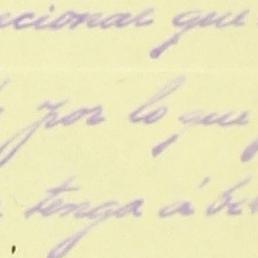 cional que
por lo que
tenga á be